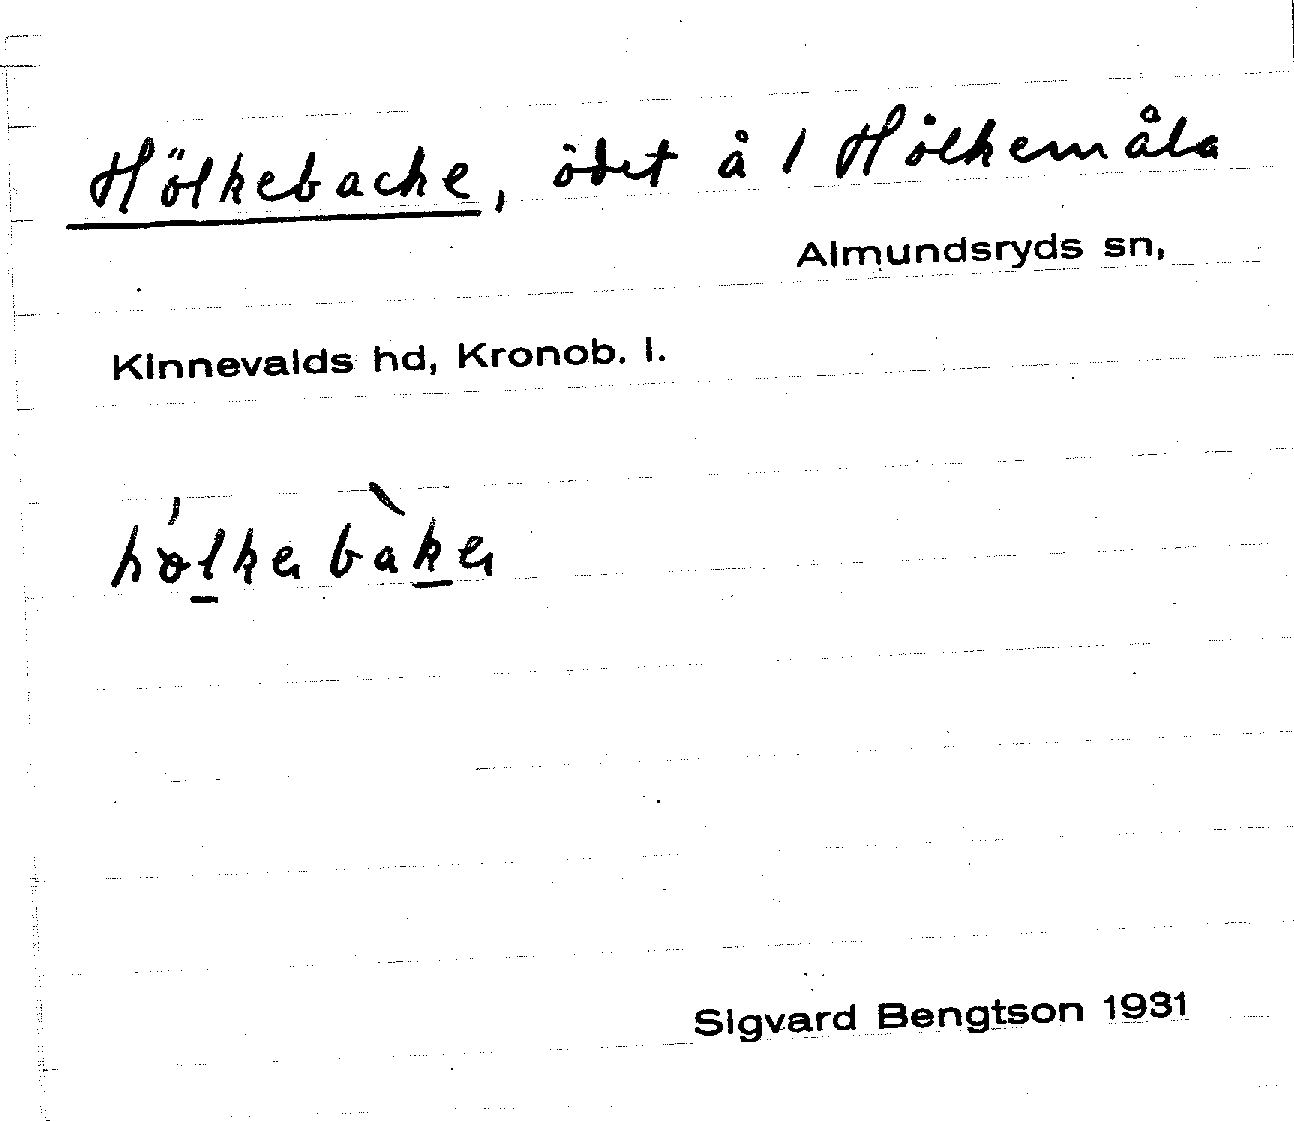 Hölkebacke, ödet å 1 Hölkemåla
Almundsryds sn,
Kinnevalds hd, Kronob. l.
hölkebàkeı
Sigvard Bengtson 1931